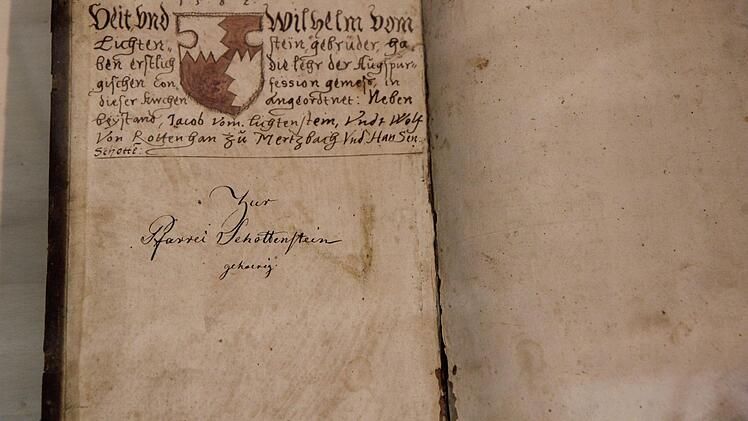 1 5 8 2.
Veit vnd Wilhelm vom
Lichten= stein, gebrüder, ha
ben erstlich die lehr der Augspur=
gischen Con fession gemeß, in
dieser kirchen angeordtnet: Neben
beystand, Jacob vom. lichtenstein, Vndt Wolf
Von Rottenhan zů Mertzbach Vnd Hansen
Schott:
Zur
Pfarrei Schottenstein
gehoerig